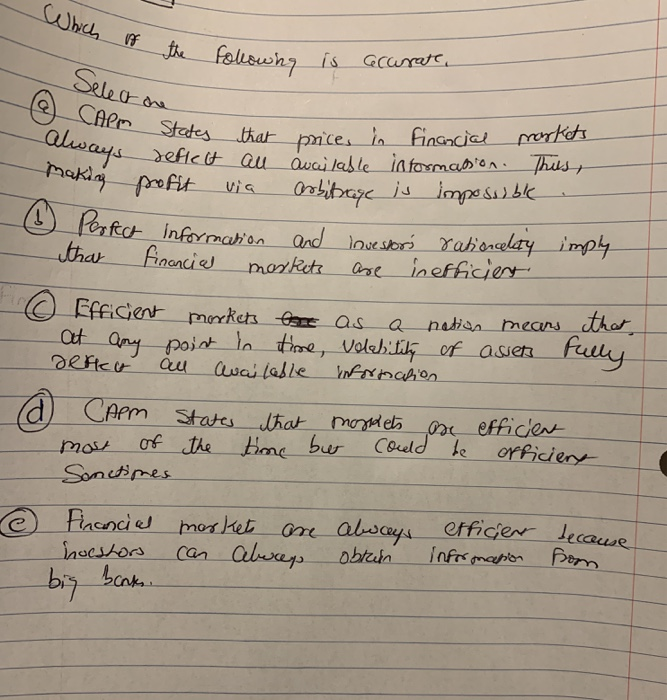 Which of the following is accurate.
Select one
(a) CAPM states that prices in financial markets
always reflect all available information. Thus,
making profit via arbitrage is impossible.
(b) Perfect information and investors rationality imply
that financial markets are inefficient.
(c) Efficient markets as a notion means that
at any point in time, volatility of assets fully
reflect all available information
(d) CAPM states that markets are efficient
most of the time but could be efficient
Sometimes
(e) Financial market are always efficient because
investors can always obtain information from
big banks.